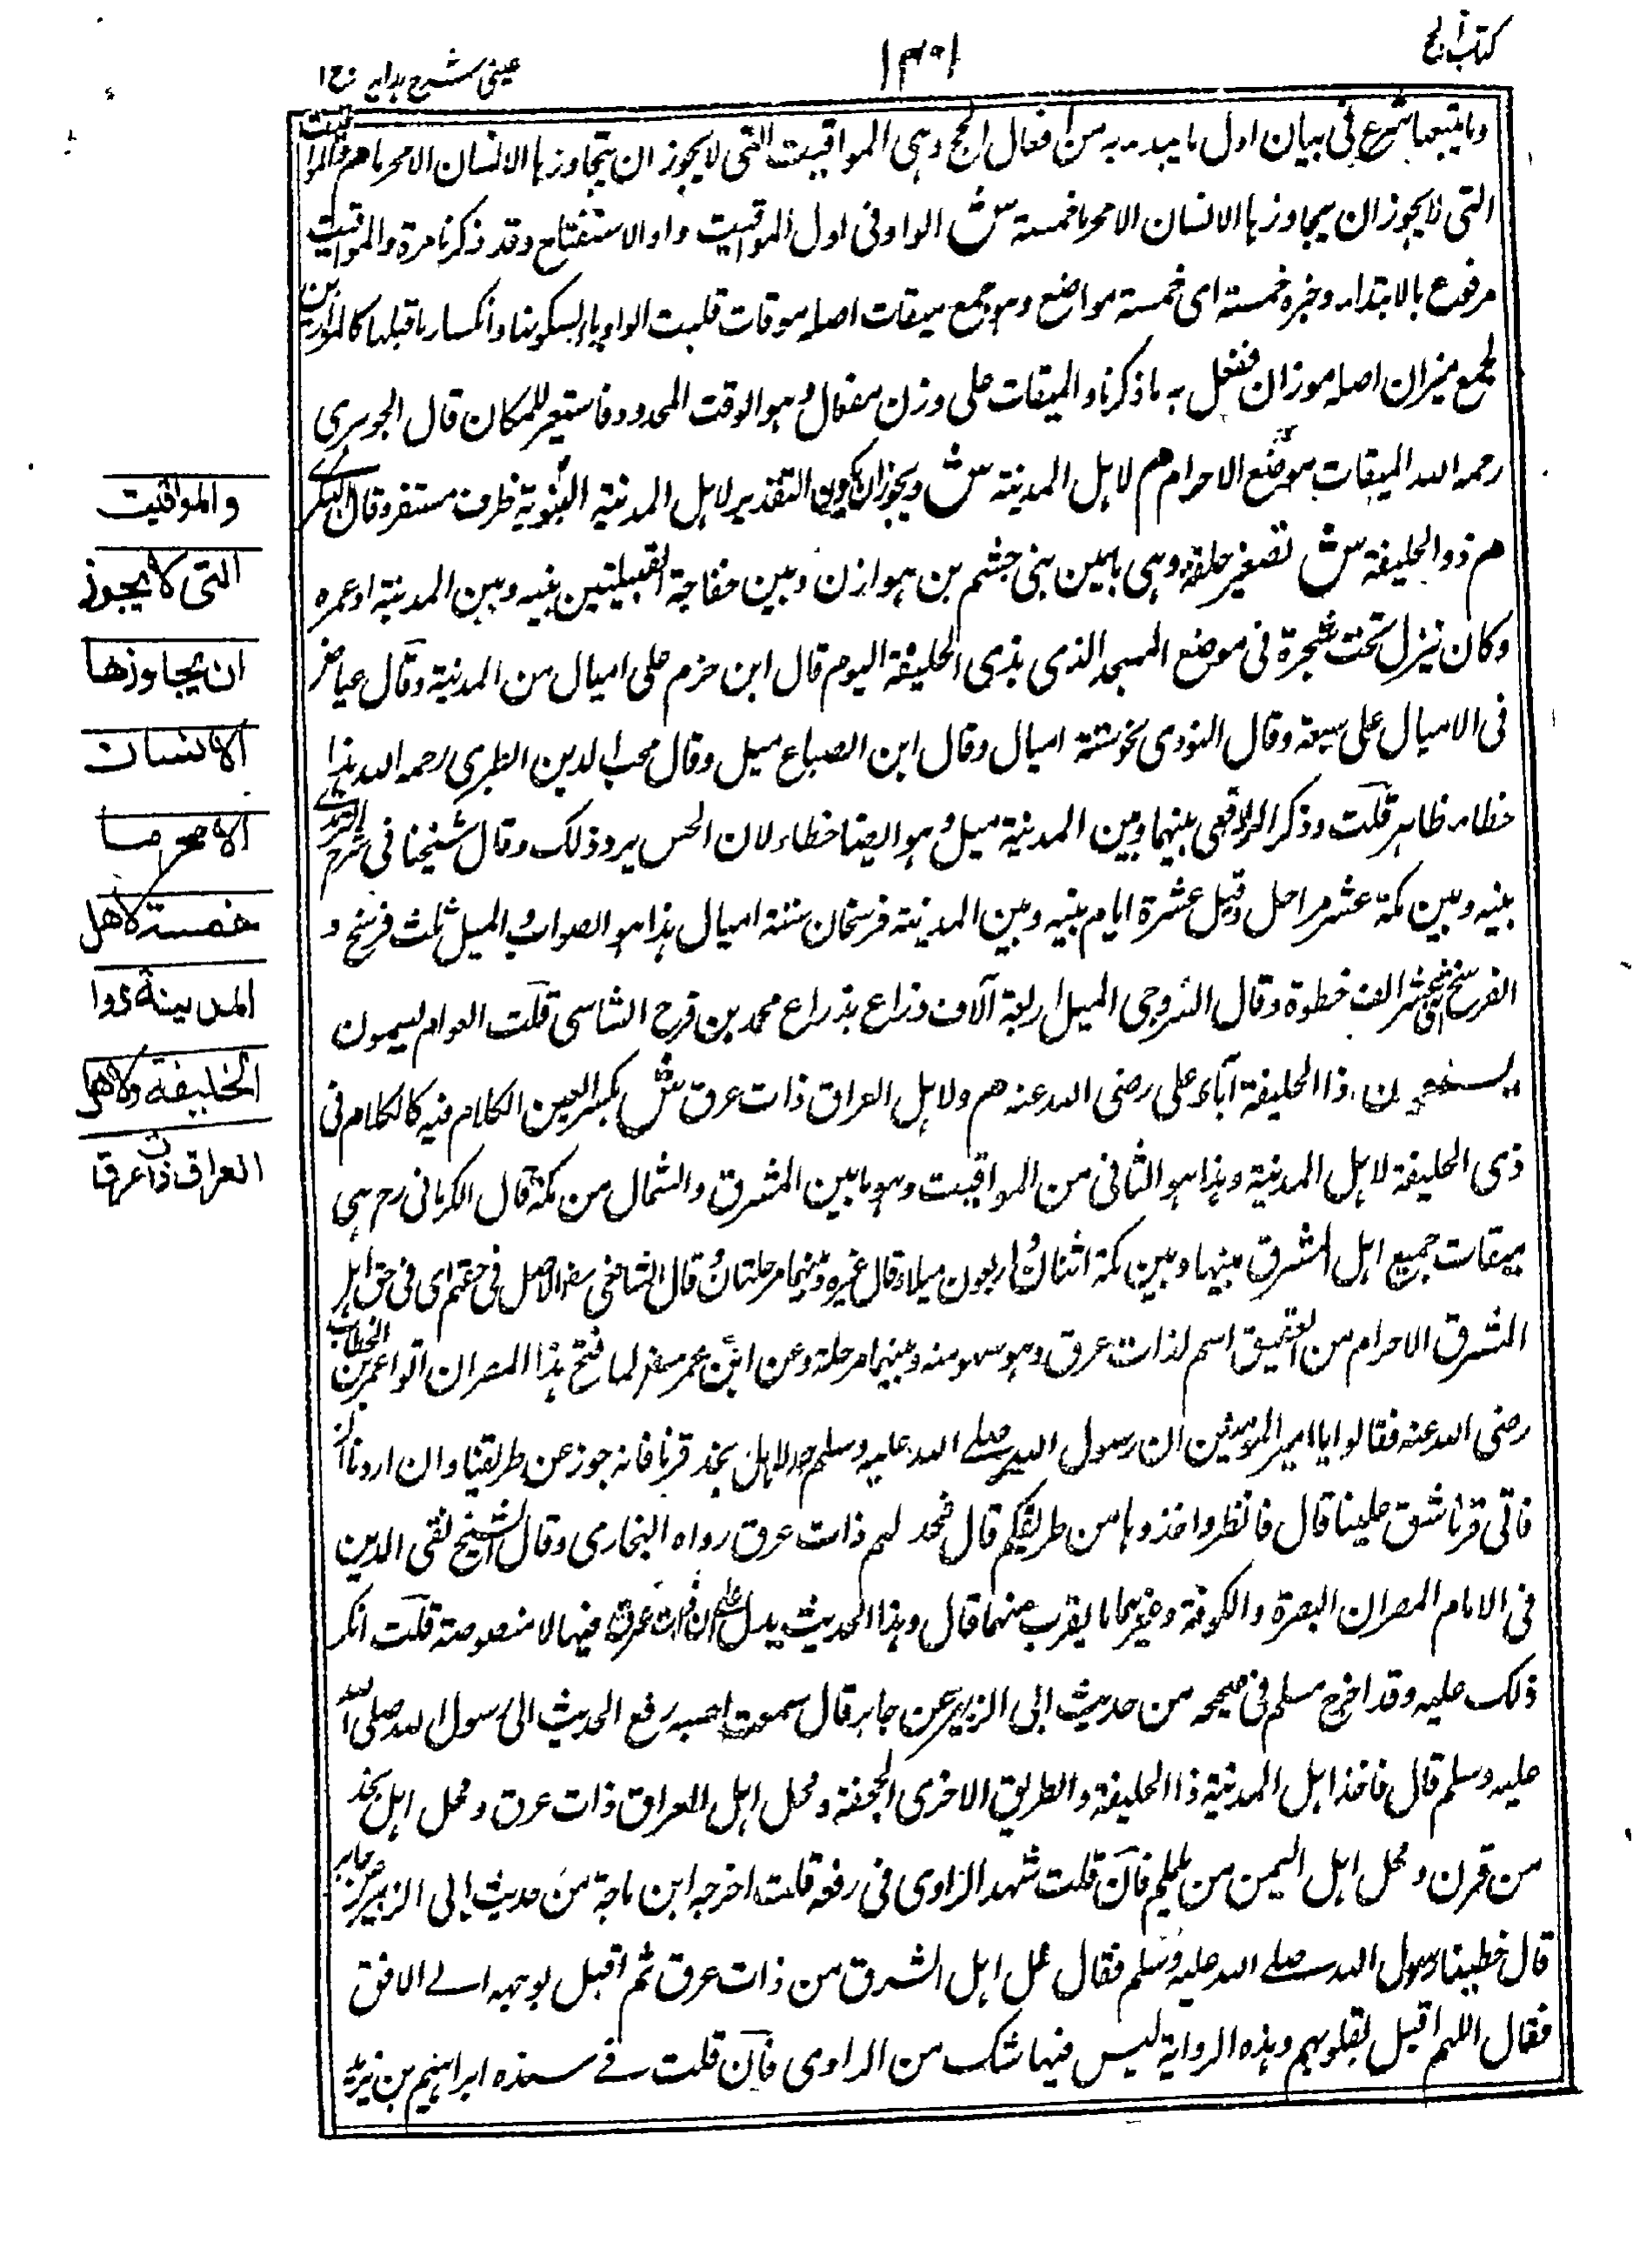 كتاب الحج
١٣٠١
عینی شرح ہدایہ ج ١
وما يتبعها شرع فى بيان اول ما يبدء به من افعال الحج وهى المواقيت التى لا يجوز ان يتجاوزها الانسان الا محرما هم والمواقيت
التى لا يجوز ان يجاوزها الانسان الا محرما خمسة ش الواو فى اول المواقيت واو الاستفتاح وقد ذكرنا مرة والمواقيت
مرفوع بالابتداء وخبره خمسة اى خمسة مواضع وهو جمع ميقات اصله موقات قلبت الواو ياء لسكونها وانكسار ما قبلها كالموازين
لجمع ميزان اصله موزان ففعل به ما ذكرنا والميقات على وزن مفعال وهو الوقت المحدود فاستعير للمكان قال الجوهرى
رحمه الله الميقات موضع الاحرام م لاهل المدينة ش ويجوز ان يكون التقدير لاهل المدينة النبوية ظرف مستقر وقال
م ذو الحليفة ش تصغير حلقة وهى ما بين بنى جشم بن هوازن وبين خفاجة القبيلتين بينه وبين المدينة
وكان ينزل تحت شجرة فى موضع المسجد الذى بذى الحليفة اليوم قال ابن حزم على اميال من المدينة وقال عياض
فى الاميال على سبعة وقال النووى نحو ستة اميال وقال ابن الصباغ ميل وقال محب الدين الطبرى رحمه الله هذا
خطاء ظاهر قلت وذكر الرافعى بينهما وبين المدينة ميل وهو ايضا خطاء لان الحس يرد ذلك وقال شيخنا فى شرح الترمذى
بينه وبين مكة عشر مراحل وقيل عشرة ايام بينه وبين المدينة فرسخان ستة اميال هذا هو الصواب والميل ثلث فرسخ و
الفرسخ اثنى عشر الف خطوة وقال السروجى الميل اربعة آلاف ذراع بذراع محمد بن فرح الشاسى قلت العوام يسمون
ذا الحليفة آبار على رضى الله عنه هم ولاهل العراق ذات عرق ش بكسر العين الكلام فيه كالكلام فى
ذى الحليفة لاهل المدينة وهذا هو الثانى من المواقيت وهو ما بين المشرق والشمال من مكة قال الكرمانى رح هى
ميقات جميع اهل المشرق بينها وبين مكة اثنان واربعون ميلا وقال غيره وبينهما مرحلتان قال الشافعى رضـ الاصل فى حقهم اى فى حق اهل
المشرق الاحرام من العقيق اسم لذات عرق وهو سهو منه وبينهما مرحلة وعن ابن عمر رضـ لما فتح هذا المصران اتوا عمر بن الخطاب
رضى الله عنه فقالوا يا امير المومنين ان رسول الله صلے الله عليه وسلم حد لاهل نجد قرنا فانه جوز عن طريقنا وان اردنا ان
ناتى قرنا شق علينا قال فانظروا حذوها من طريقكم قال فحد لهم ذات عرق رواه البخارى وقال الشيخ تقى الدين
فى الامام المصران البصرة والكوفة وغيرهما ما يقرب منهما قال وهذا الحديث يدل على ان ذات عرق فيها لا منصوصة قلت انكر
ذلك عليه وقد اخرج مسلم فى صحيحه من حديث ابى الزبير عن جابر قال سمعت احسبه رفع الحديث الى رسول الله صلى الله
عليه وسلم قال فاخذ اهل المدينة ذا الحليفة والطريق الاخرى الجحفة ومحل اهل العراق ذات عرق ومحل اهل نجد
من قرن ومحل اهل اليمن من يلملم فان قلت شهد الراوى فى رفعه قلت اخرجه ابن ماجة من حديث ابى الزبير عن جابر
قال خطبنا رسول الله صلے الله عليه وسلم فقال محل اهل الشرق من ذات عرق ثم اقبل بوجهه الے الافق
فقال اللهم اقبل بقلوبهم وهذه الرواية ليس فيها شك من الراوى فان قلت فے سنده ابراهيم بن يزيد
والمواقيت
التى لا يجوز
ان يجاوزها
الانسان
الا محرما
خمسة لاهل
المدينة ذوا
الحليفة ولاهل
العراق ذات عرقا